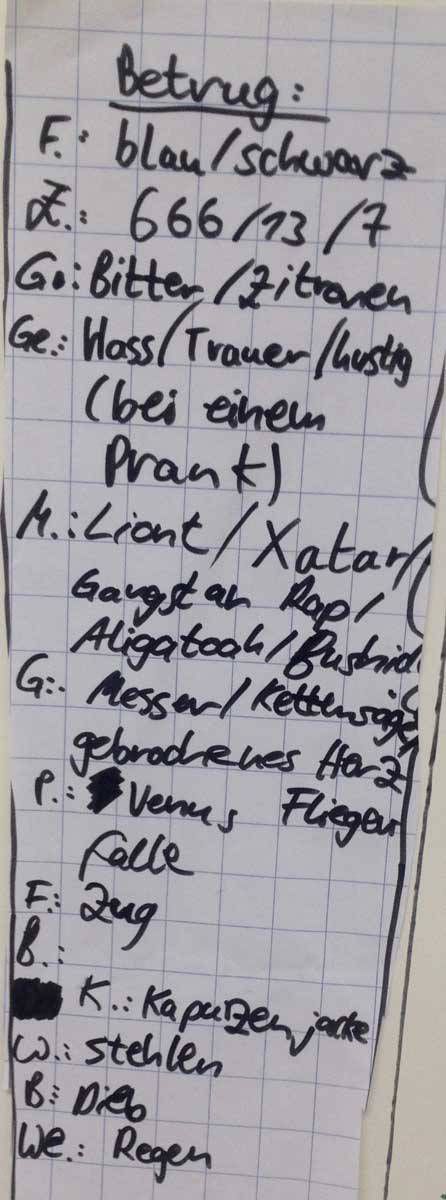 Betrug:
F.: blau/schwarz
Z.: 666/13/7
Go: Bitter/Zitronen
Ge.: Hass/Trauer/lustig
(bei einem
Prank)
M.: Liont/Xatar/
Gangstah Rap/
Aligatoah/Bushid
G.: Messer/Kettensäge
gebrochenes Herz
P.: Venus Fliegen
falle
F.: Zug
B.:
K.: Kapuzenjacke
W.: stehlen
B: Dieb
We.: Regen